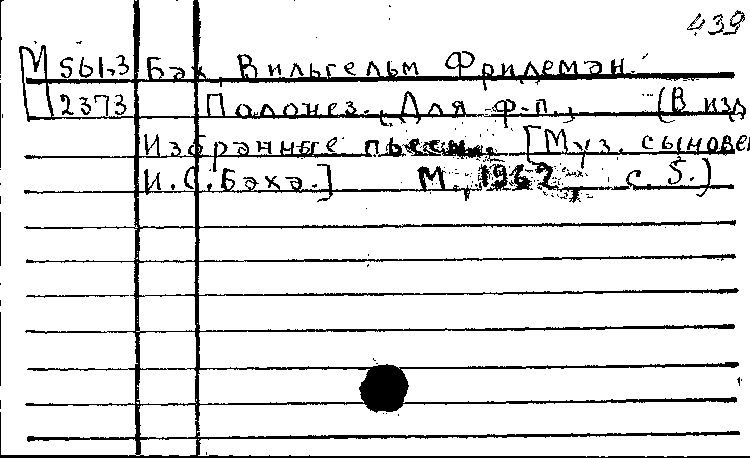 439
М 561.3 Бах, Вильгельм Фридеман.
2373 Полонез. Для ф-п., (В изд
Избранные пьесы. [Муз. сыновей
И.С.Баха.] М., 1962, с. 5.)